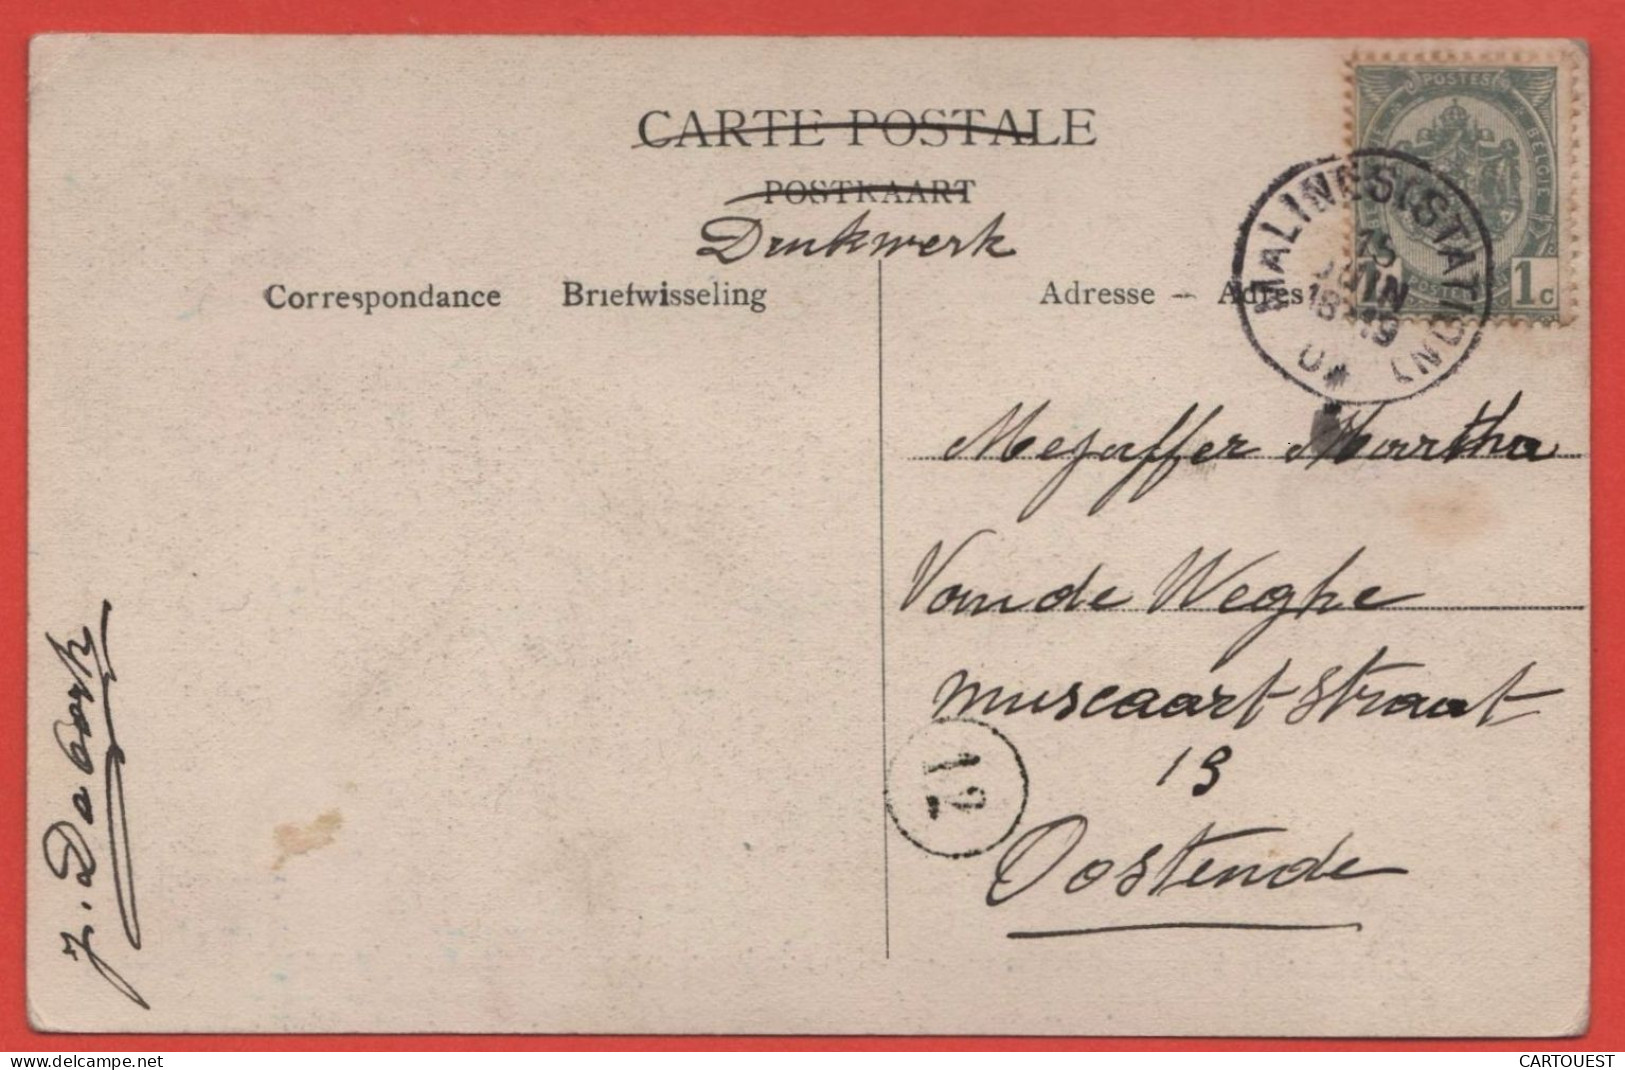 CARTE POSTALE
POSTKAART
Drukwerk
Correspondance Briefwisseling
Adresse — Adres
POSTES
BELGIE
1 POSTERIJEN 1c
MALINES (STATION)
15
JUIN
18-19
Mejuffer Martha
Van de Weghe
muscaart straat
13
12
Oostende
J. De
CARTOUEST
www.delcampe.net